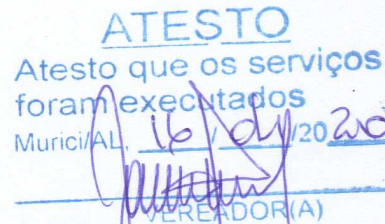 ATESTO
Atesto que os serviços
foram executados
Murici/AL, 16 / 04 /20 20
VEREADOR(A)